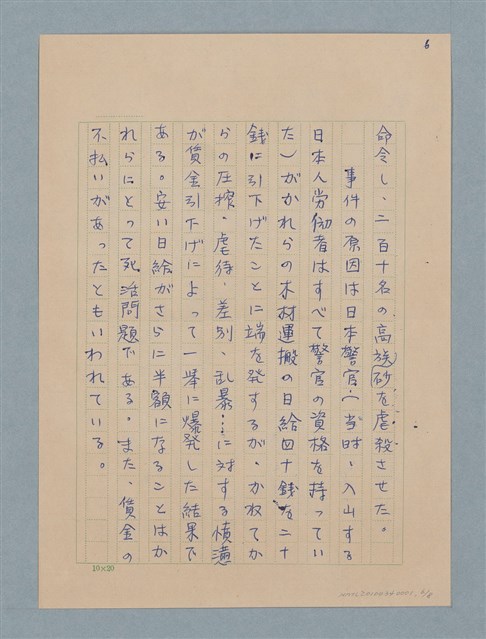 6
命令し、二百十名の高族砂を虐殺させた。
事件の原因は日本警官（当時、入山する
日本人労働者はすべて警官の資格を持ってい
た）がかれらの木材運搬の日給四十銭を二十
銭に引下げたことに端を発するが、かねてか
らの圧搾、虐待、差別、乱暴…に対する憤懣
が賃金引下げによって一挙に爆発した結果で
ある。安い日給がさらに半額になることはか
れらにとって死活問題である。また、賃金の
不払いがあったともいわれている。
10×20